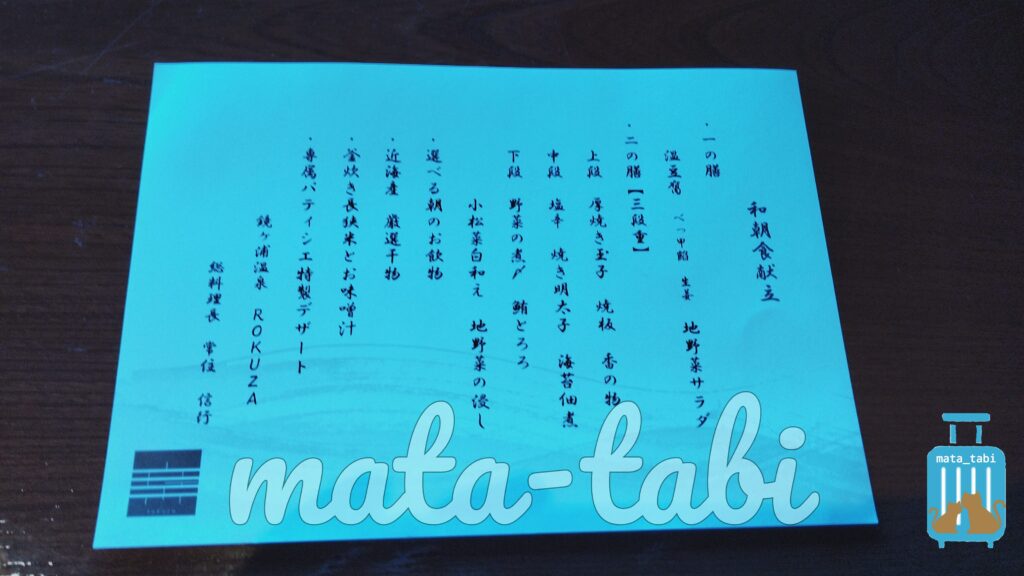 和朝食献立
・一の膳
温豆腐 べっ甲餡 生姜 地野菜サラダ
・二の膳【三段重】
上段 厚焼き玉子 焼板 香の物
中段 塩辛 焼き明太子 海苔佃煮
下段 野菜の煮〆 鮪とろろ
小松菜白和え 地野菜の浸し
・選べる朝のお飲物
・近海産 厳選干物
・釜炊き長狭米とお味噌汁
・専属パティシエ特製デザート
鏡ヶ浦温泉 ROKUZA
総料理長 常住 信行
mata-tabi
mata_tabi